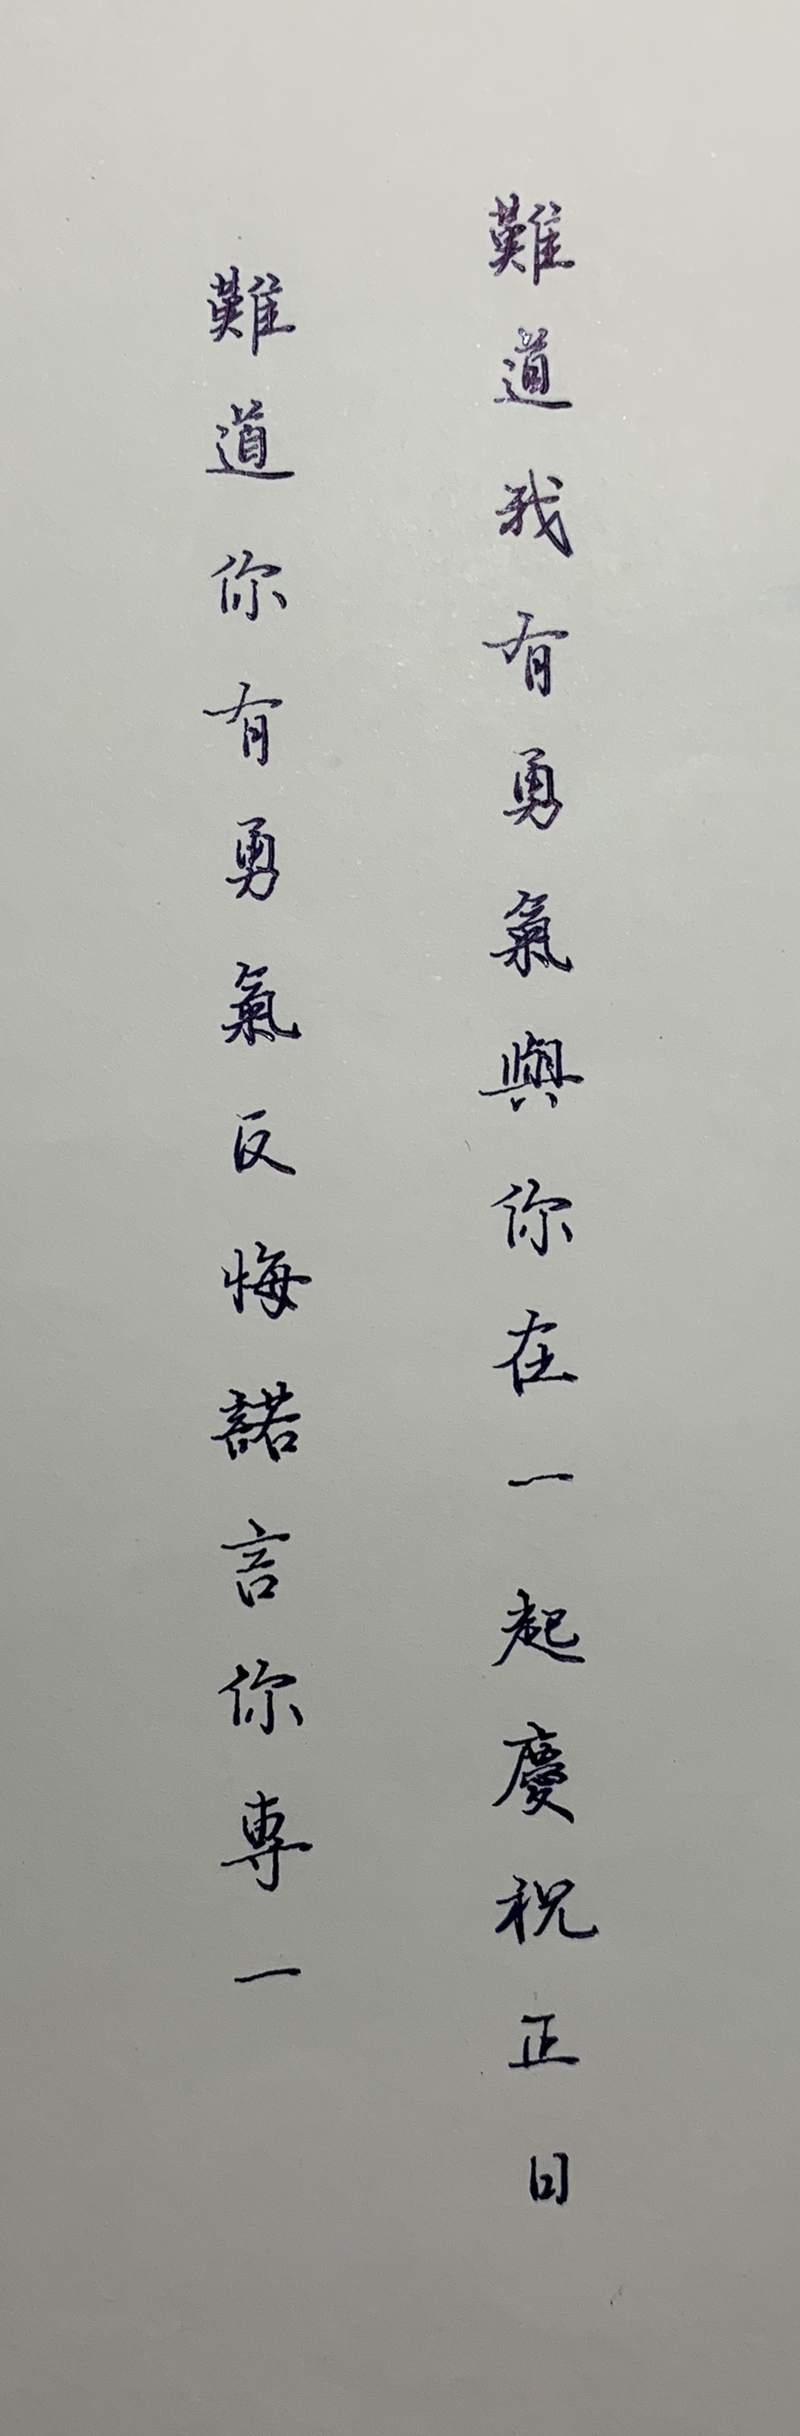 難道我有勇氣與你在一起慶祝正日
難道你有勇氣反悔諾言你專一